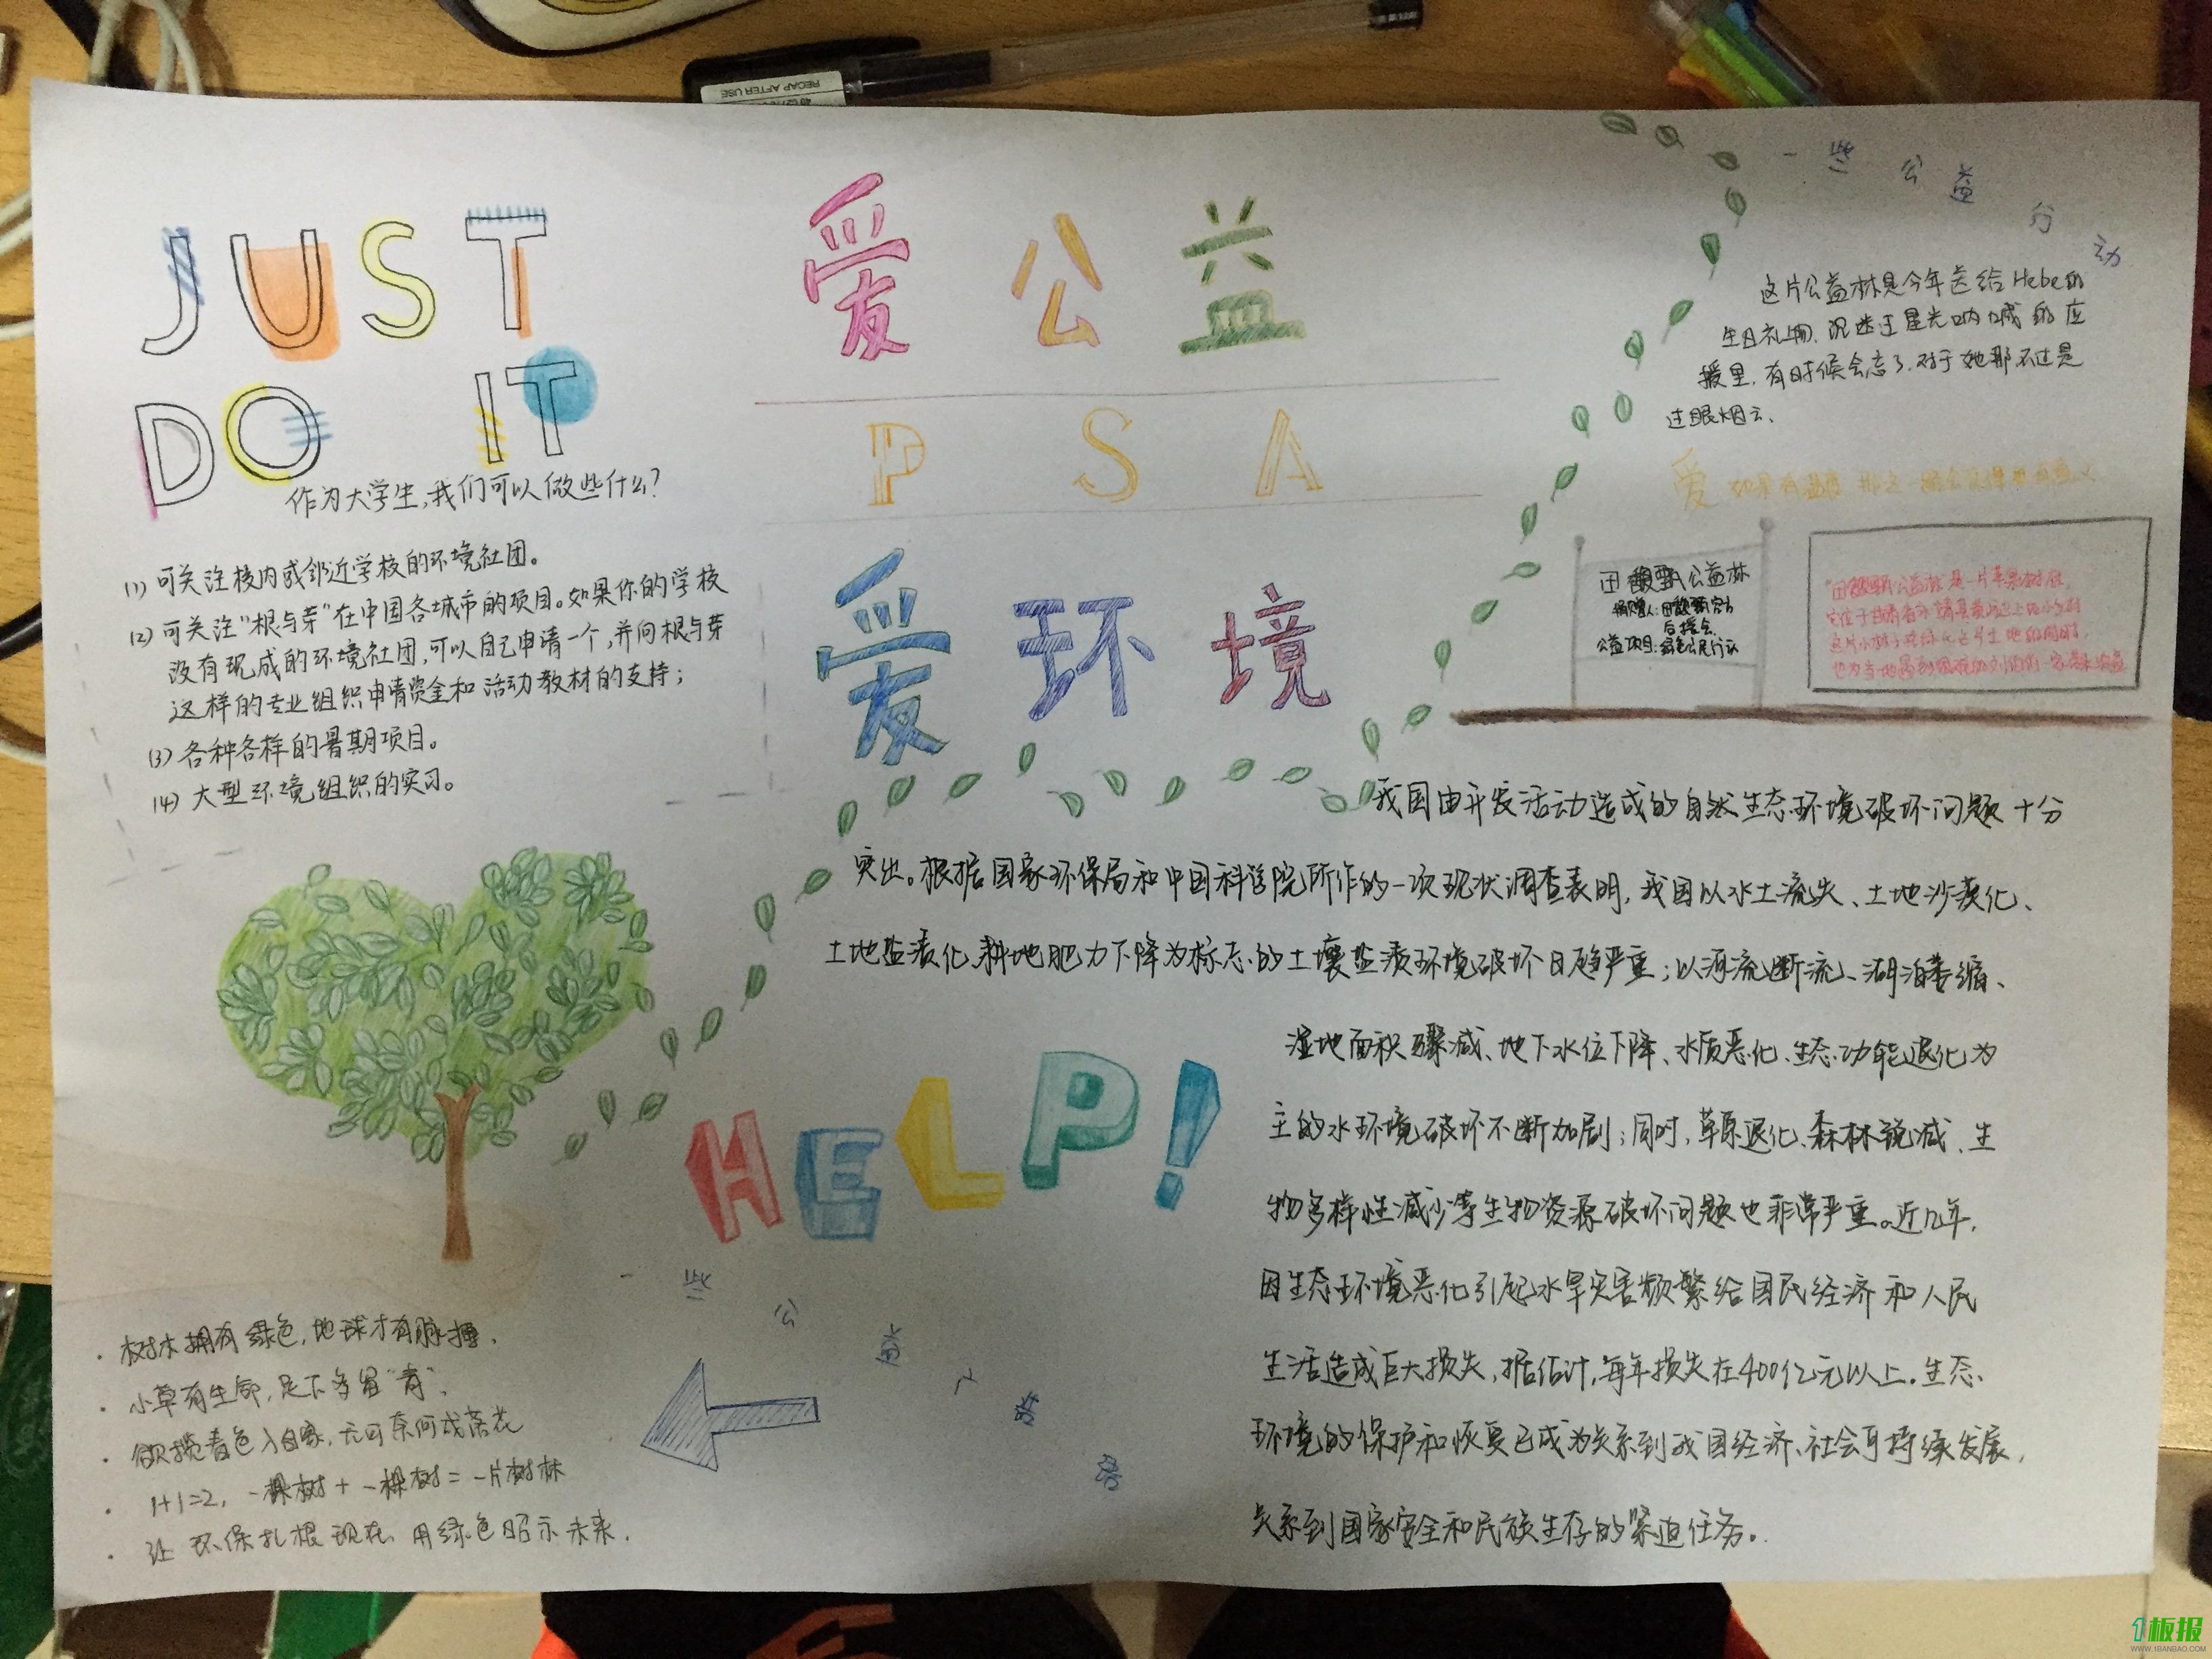 JUST
DO IT
作为大学生,我们可以做些什么?
(1) 可关注校内或邻近学校的环境社团。
(2) 可关注“根与芽”在中国各城市的项目。如果你的学校
没有现成的环境社团,可以自己申请一个,并向根与芽
这样的专业组织申请资金和活动教材的支持;
(3) 各种各样的暑期项目。
(4) 大型环境组织的实习。
爱公益
PSA
爱环境
一些公益行动
这片公益林是今年送给Hebe的
生日礼物,沉迷于星光呐喊的应
援里,有时候会忘了,对于她那不过是
过眼烟云、
爱 如果有温度 那这一
田馥甄公益林
捐赠人:田馥甄官方
后援会
公益项目:绿色公民行动
“田馥甄公益林”是一片苹果树林,
它位于甘肃省
这片小林子在绿化这片土地的同时,
也为当地
我国由开发活动造成的自然生态环境破坏问题十分
突出。根据国家环保局和中国科学院所作的一次现状调查表明,我国以水土流失、土地沙漠化、
土地盐渍化、耕地肥力下降为标志的土壤盐渍环境破坏日趋严重;以河流断流、湖泊萎缩、
湿地面积骤减、地下水位下降、水质恶化、生态功能退化为
主的水环境破坏不断加剧;同时,草原退化、森林锐减、生
物多样性减少等生物资源破坏问题也非常严重。近几年,
因生态环境恶化引起水旱灾害频繁给国民经济和人民
生活造成巨大损失,据估计,每年损失在400亿元以上。生态
环境的保护和恢复已成为关系到我国经济、社会可持续发展,
关系到国家安全和民族生存的紧迫任务。
HELP!
一些公益广告语
· 树木拥有绿色,地球才有脉搏.
· 小草有生命,足下多留“青”.
· 欲揽春色入自家,无可奈何成落花
· 1+1=2, 一棵树+一棵树=一片树林
· 让环保扎根现在,用绿色昭示未来.
RECAP AFTER USE
1板报
WWW.1BANBAO.COM